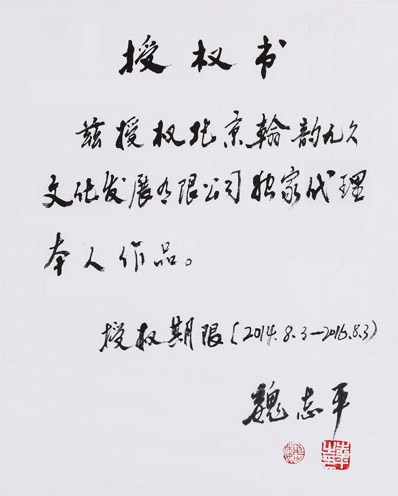 授权书
兹授权北京翰韵九久
文化发展有限公司独家代理
本人作品。
授权期限(2014.8.3—2016.8.3)
魏志平